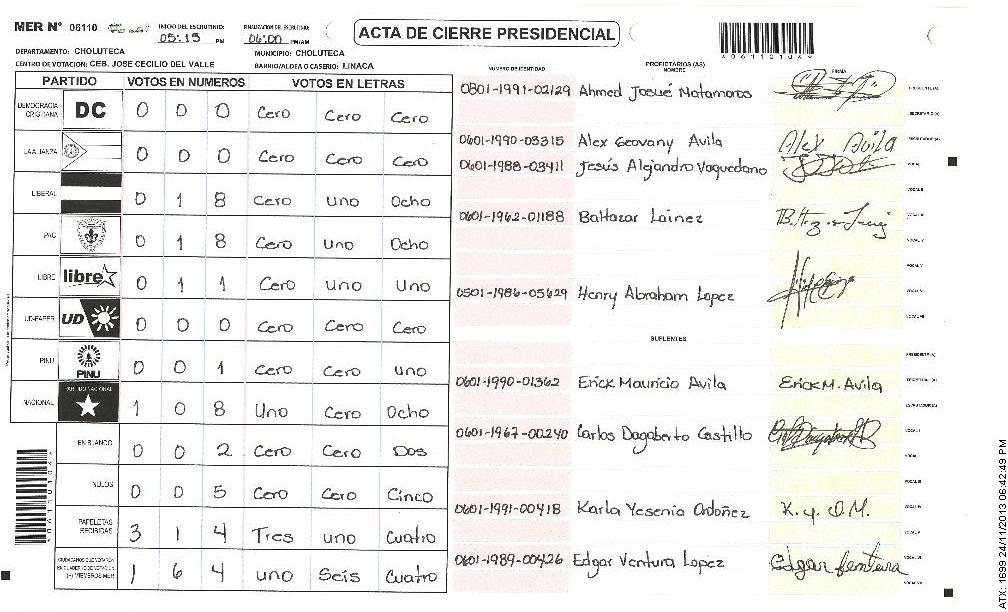 MER Nº 06110 INICIO DEL ESCRUTINIO: 05:15 PM FINALIZACION DEL ESCRUTINIO: 06:00 PM/AM
ACTA DE CIERRE PRESIDENCIAL
DEPARTAMENTO: CHOLUTECA MUNICIPIO: CHOLUTECA
CENTRO DE VOTACION: CEB. JOSE CECILIO DEL VALLE BARRIO/ALDEA O CASERIO: LINACA
PARTIDO VOTOS EN NUMEROS VOTOS EN LETRAS
DEMOCRACIA CRISTIANA DC 0 0 0 Cero Cero Cero
LA ALIANZA 0 0 0 Cero Cero Cero
LIBERAL 0 1 8 Cero Uno Ocho
PAC 0 1 8 Cero Uno Ocho
LIBRE libre 0 1 1 Cero Uno Uno
UD-FAPER UD 0 0 0 Cero Cero Cero
PINU PINU 0 0 1 Cero Cero uno
NACIONAL PARTIDO NACIONAL 1 0 8 Uno Cero Ocho
EN BLANCO 0 0 2 Cero Cero Dos
NULOS 0 0 5 Cero Cero Cinco
PAPELETAS RECIBIDAS 3 1 4 Tres uno Cuatro
CIUDADANOS QUE VOTARON EN CUADERNO DE VOTACION (+) MIEMBROS MER 1 6 4 uno Seis Cuatro
PROPIETARIOS (AS)
NUMERO DE IDENTIDAD NOMBRE FIRMA
0801-1991-02129 Ahmed Josué Matamoros PRESIDENTE(A)
SECRETARIO(A)
0601-1990-03315 Alex Geovany Avila Alex Avila ESCRUTADOR(A)
0601-1988-03411 Jesús Alejandro Vaquedano VOCAL I
VOCAL II
0601-1962-01188 Baltazar Lainez VOCAL III
VOCAL IV
VOCAL V
0501-1986-05629 Henry Abraham Lopez VOCAL VI
VOCAL VII
SUPLENTES
PRESIDENTE(A)
0601-1990-01362 Erick Mauricio Avila Erick M. Avila SECRETARIO(A)
ESCRUTADOR(A)
0601-1967-00240 Carlos Dagoberto Castillo VOCAL I
VOCAL II
VOCAL III
0601-1991-00418 Karla Yesenia Ordoñez K. y. O.M. VOCAL IV
VOCAL V
0601-1989-00426 Edgar Ventura Lopez Edgar Ventura VOCAL VI
VOCAL VII
ATX: 1699 24/11/2013 06:42:49 PM